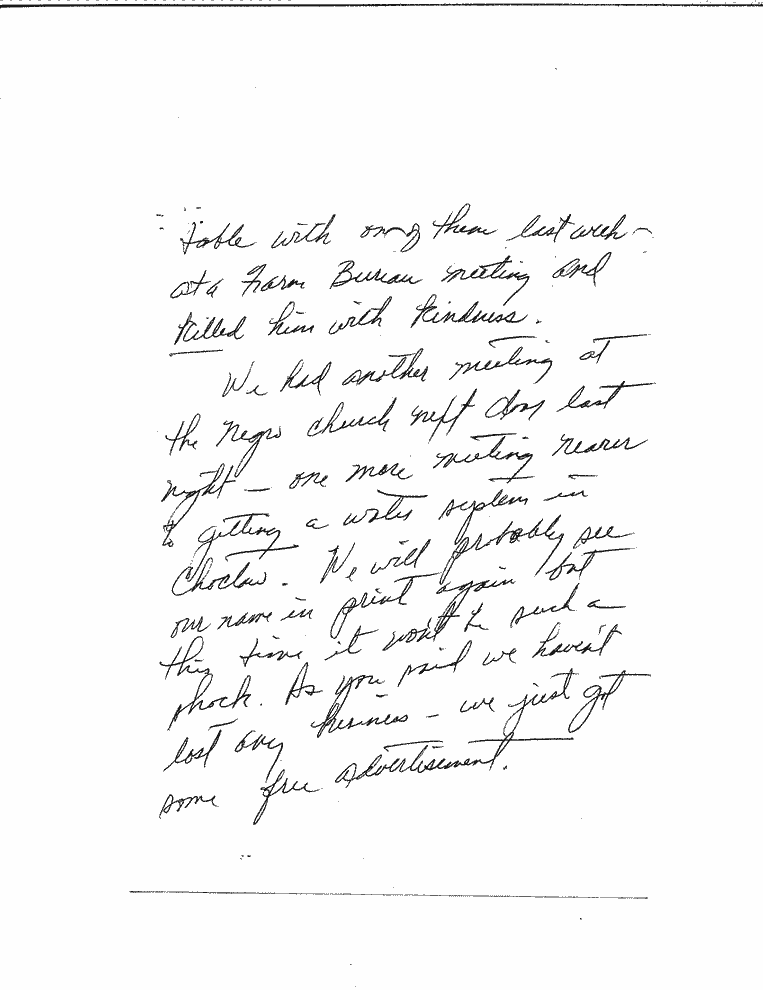 table with one of them last week -
at a Farm Bureau meeting and
killed him with kindness.
We had another meeting at
the negro church next door last
night - one more meeting nearer
to getting a water system in
Choctaw. We will probably see
our name in print again but
this time it won't be such a
shock. As you said we haven't
lost any business - we just got
some free advertisement.